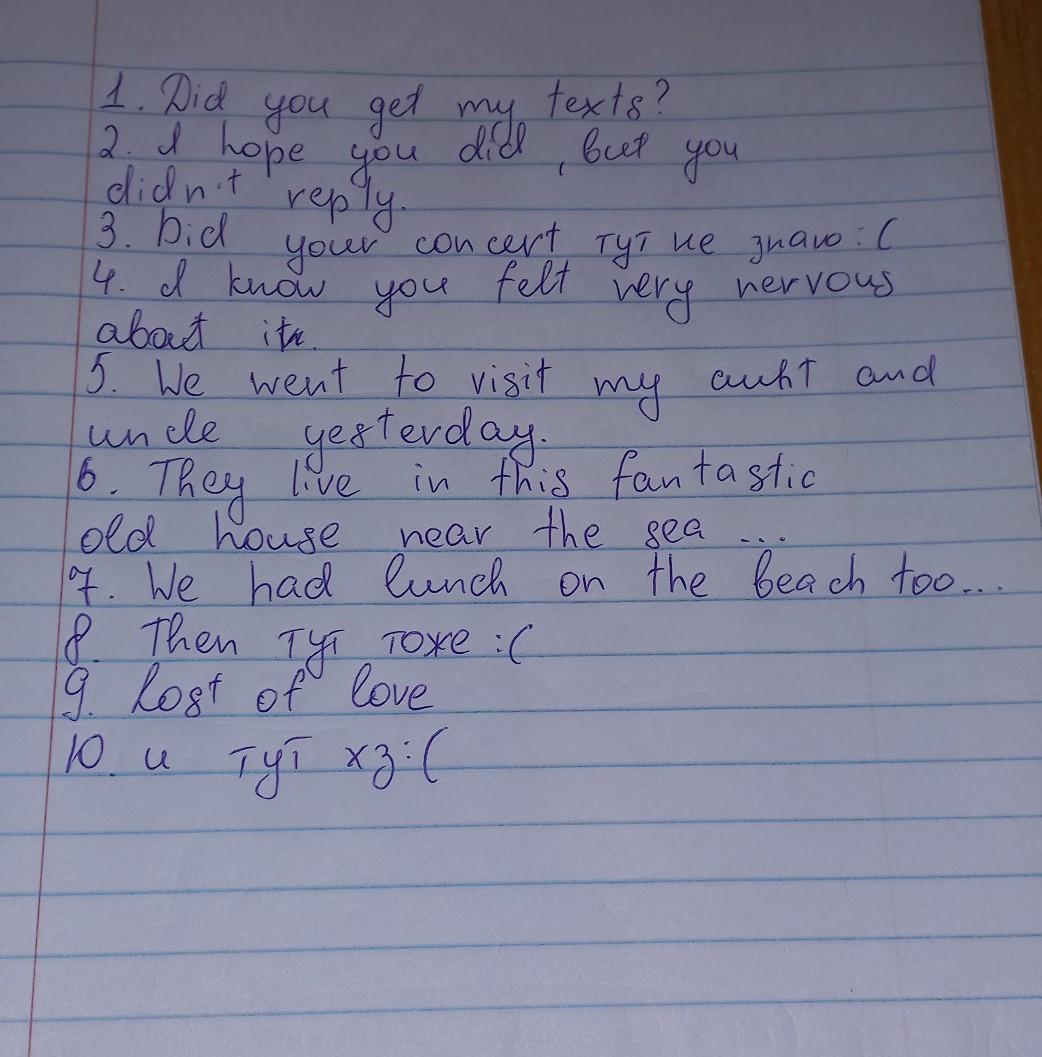 1. Did you get my texts?
2. I hope you did, but you
didn't reply.
3. Did your concert тут не знаю :(
4. I know you felt very nervous
about it.
5. We went to visit my aunt and
uncle yesterday.
6. They live in this fantastic
old house near the sea ...
7. We had lunch on the beach too...
8. Then тут тоже :(
9. Lost of love
10. и тут хз :(